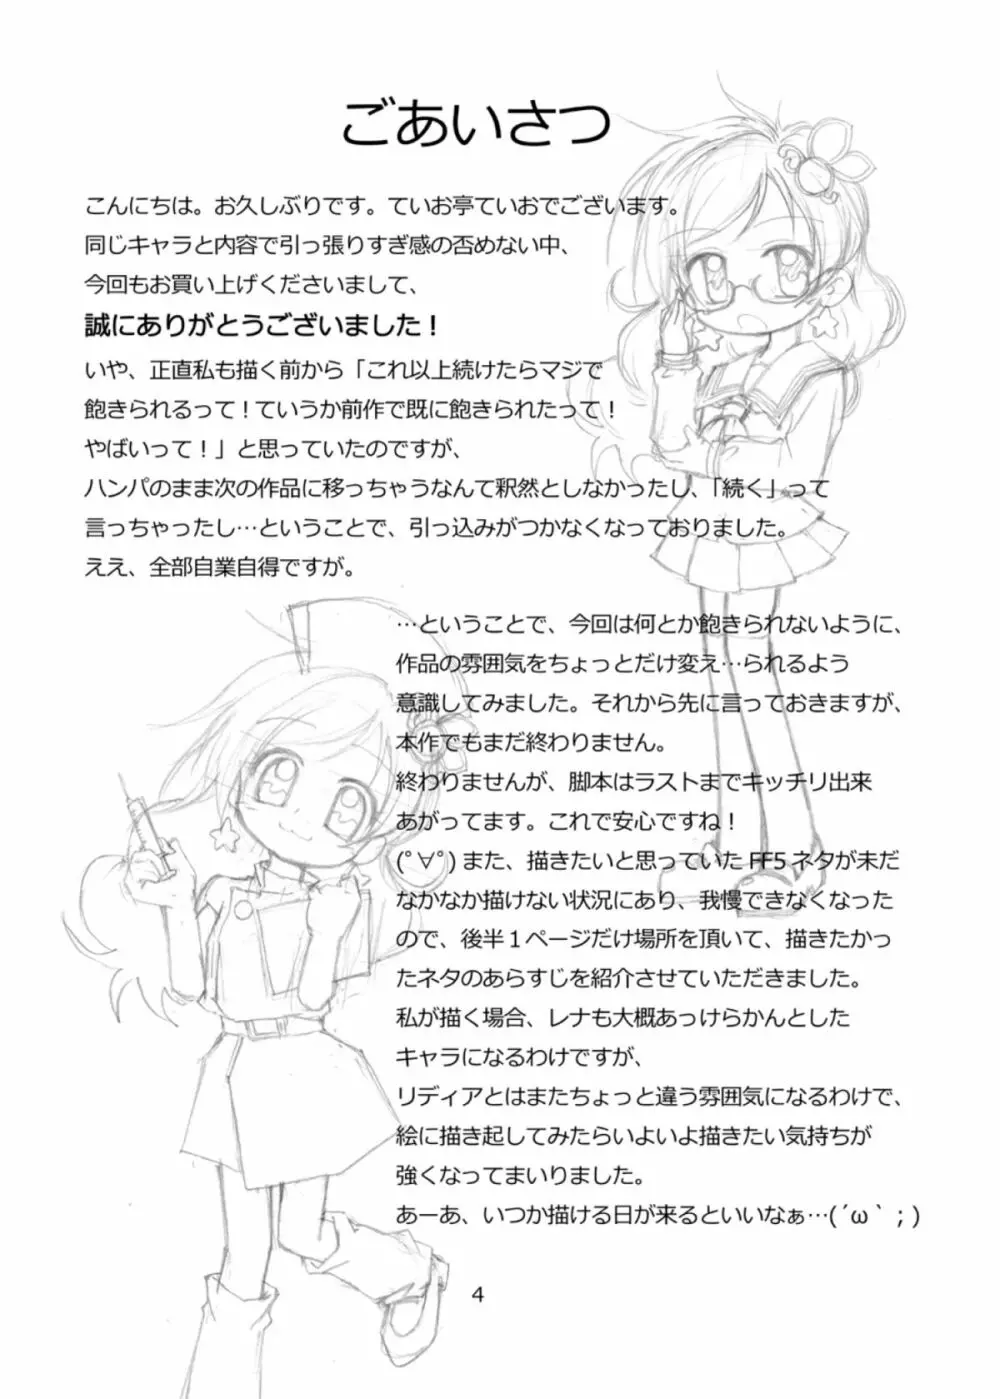 ごあいさつ
こんにちは。お久しぶりです。ていお亭ていおでございます。
同じキャラと内容で引っ張りすぎ感の否めない中、
今回もお買い上げくださいまして、
誠にありがとうございました！
いや、正直私も描く前から「これ以上続けたらマジで
飽きられるって！ていうか前作で既に飽きられたって！
やばいって！」と思っていたのですが、
ハンパのまま次の作品に移っちゃうなんて釈然としなかったし、「続く」って
言っちゃったし…ということで、引っ込みがつかなくなっておりました。
ええ、全部自業自得ですが。
…ということで、今回は何とか飽きられないように、
作品の雰囲気をちょっとだけ変え…られるよう
意識してみました。それから先に言っておきますが、
本作でもまだ終わりません。
終わりませんが、脚本はラストまでキッチリ出来
あがってます。これで安心ですね！
(ﾟ∀ﾟ)また、描きたいと思っていたFF5ネタが未だ
なかなか描けない状況にあり、我慢できなくなった
ので、後半１ページだけ場所を頂いて、描きたかっ
たネタのあらすじを紹介させていただきました。
私が描く場合、レナも大概あっけらかんとした
キャラになるわけですが、
リディアとはまたちょっと違う雰囲気になるわけで、
絵に描き起してみたらいよいよ描きたい気持ちが
強くなってまいりました。
あーあ、いつか描ける日が来るといいなぁ…(´ω｀；)
4